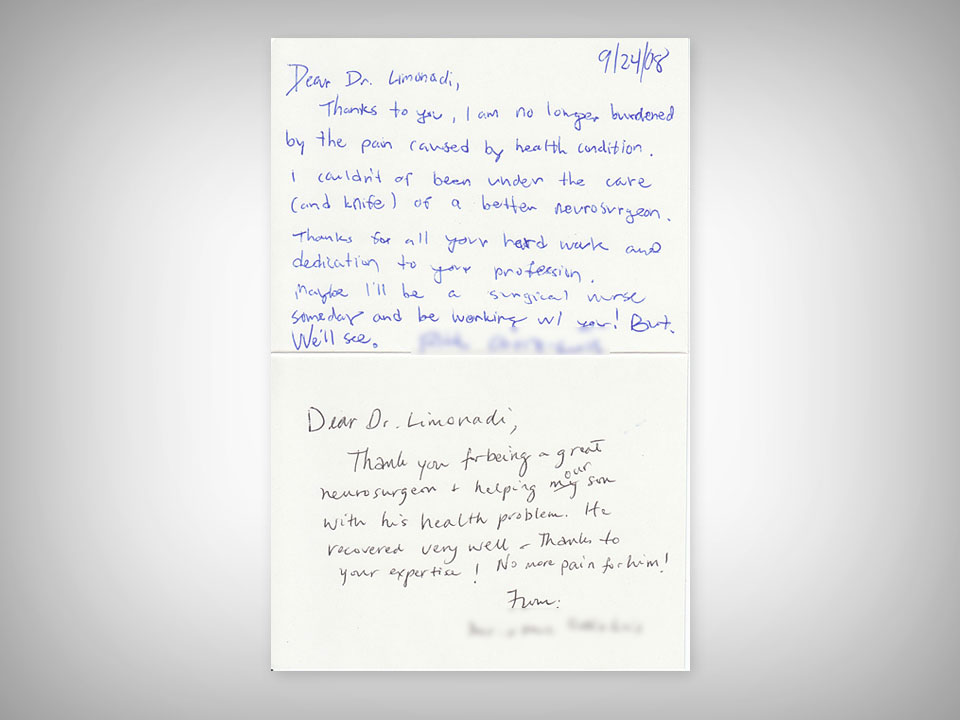 9/24/08
Dear Dr. Limonadi,
Thanks to you, I am no longer burdened
by the pain caused by health condition.
I couldn't of been under the care
(and knife) of a better neurosurgeon.
Thanks for all your hard work and
dedication to your profession.
Maybe I'll be a surgical nurse
someday and be working w/ you! But.
We'll see.
Dear Dr. Limonadi,
Thank you for being a great
neurosurgeon + helping my our son
with his health problem. He
recovered very well - Thanks to
your expertise! No more pain for him!
From: